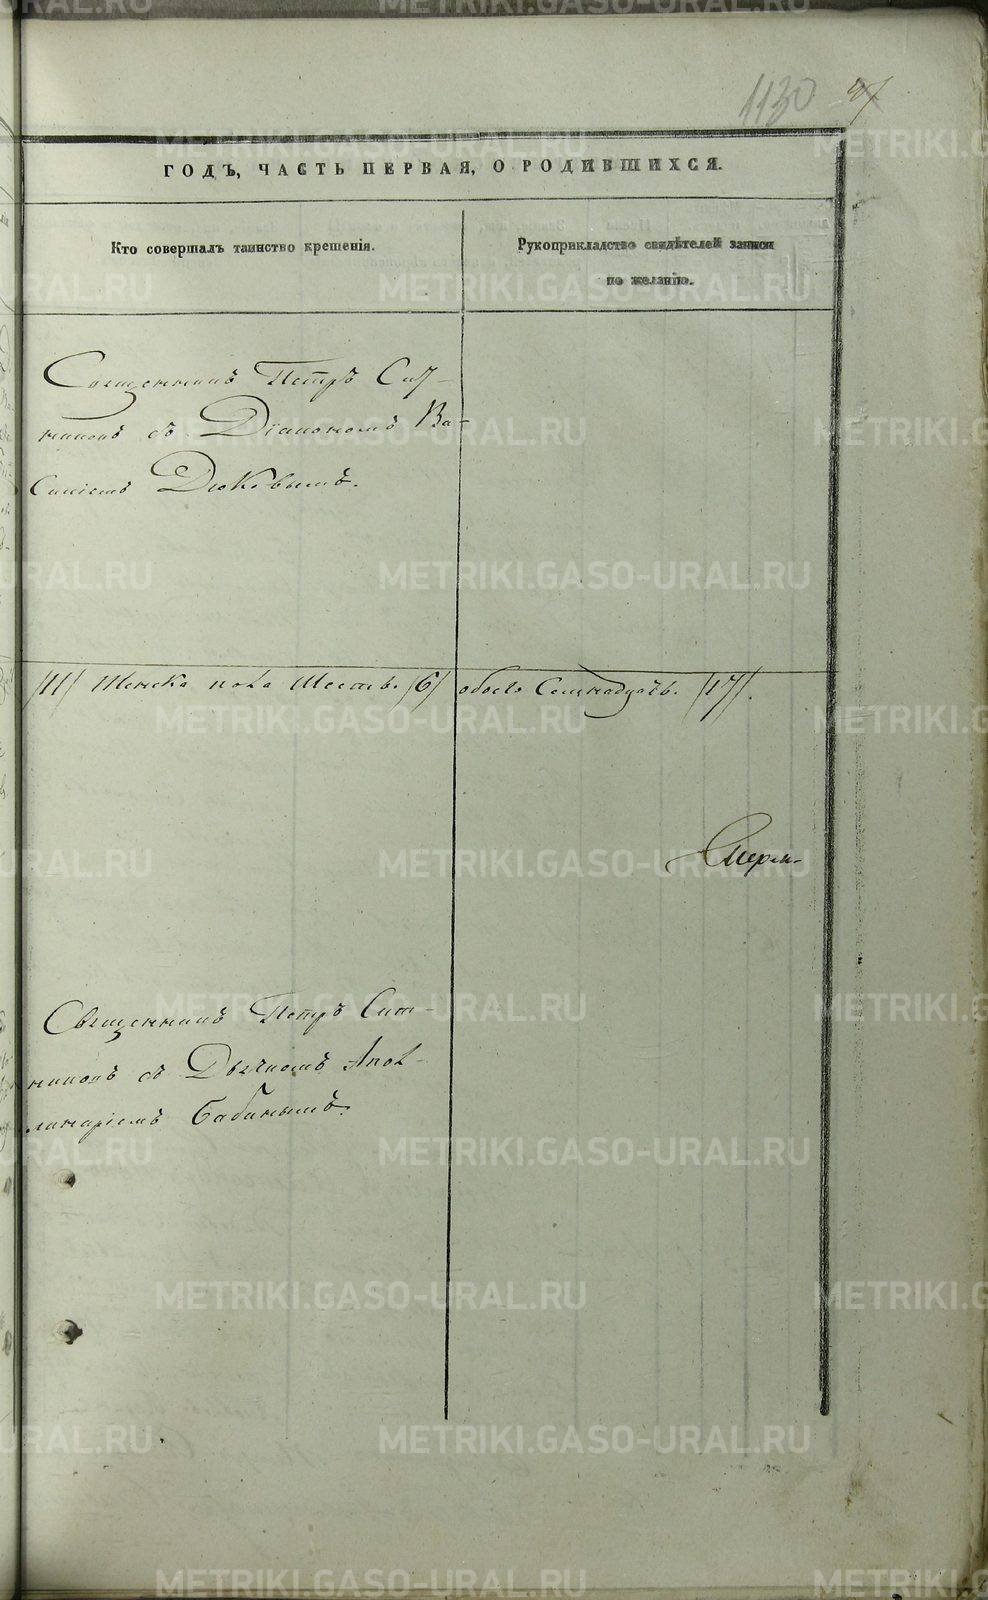 1130 97
ГОДЪ, ЧАСТЬ ПЕРВАЯ, О РОДИВШИХСЯ.
Кто совершалъ таинство крещенія.
Рукоприкладство свидѣтелей записи
по желанію.
Священникъ Петръ Сит-
никовъ съ Діакономъ Ва-
силіемъ Дюковымъ.
/11/ Женска пола Шесть. /6/ обоего Семнадцать. /17/.
Свещенникъ Петръ Сит-
никовъ съ Дьячкомъ Апол-
линаріемъ Бабинымъ.
METRIKI.GASO-URAL.RU